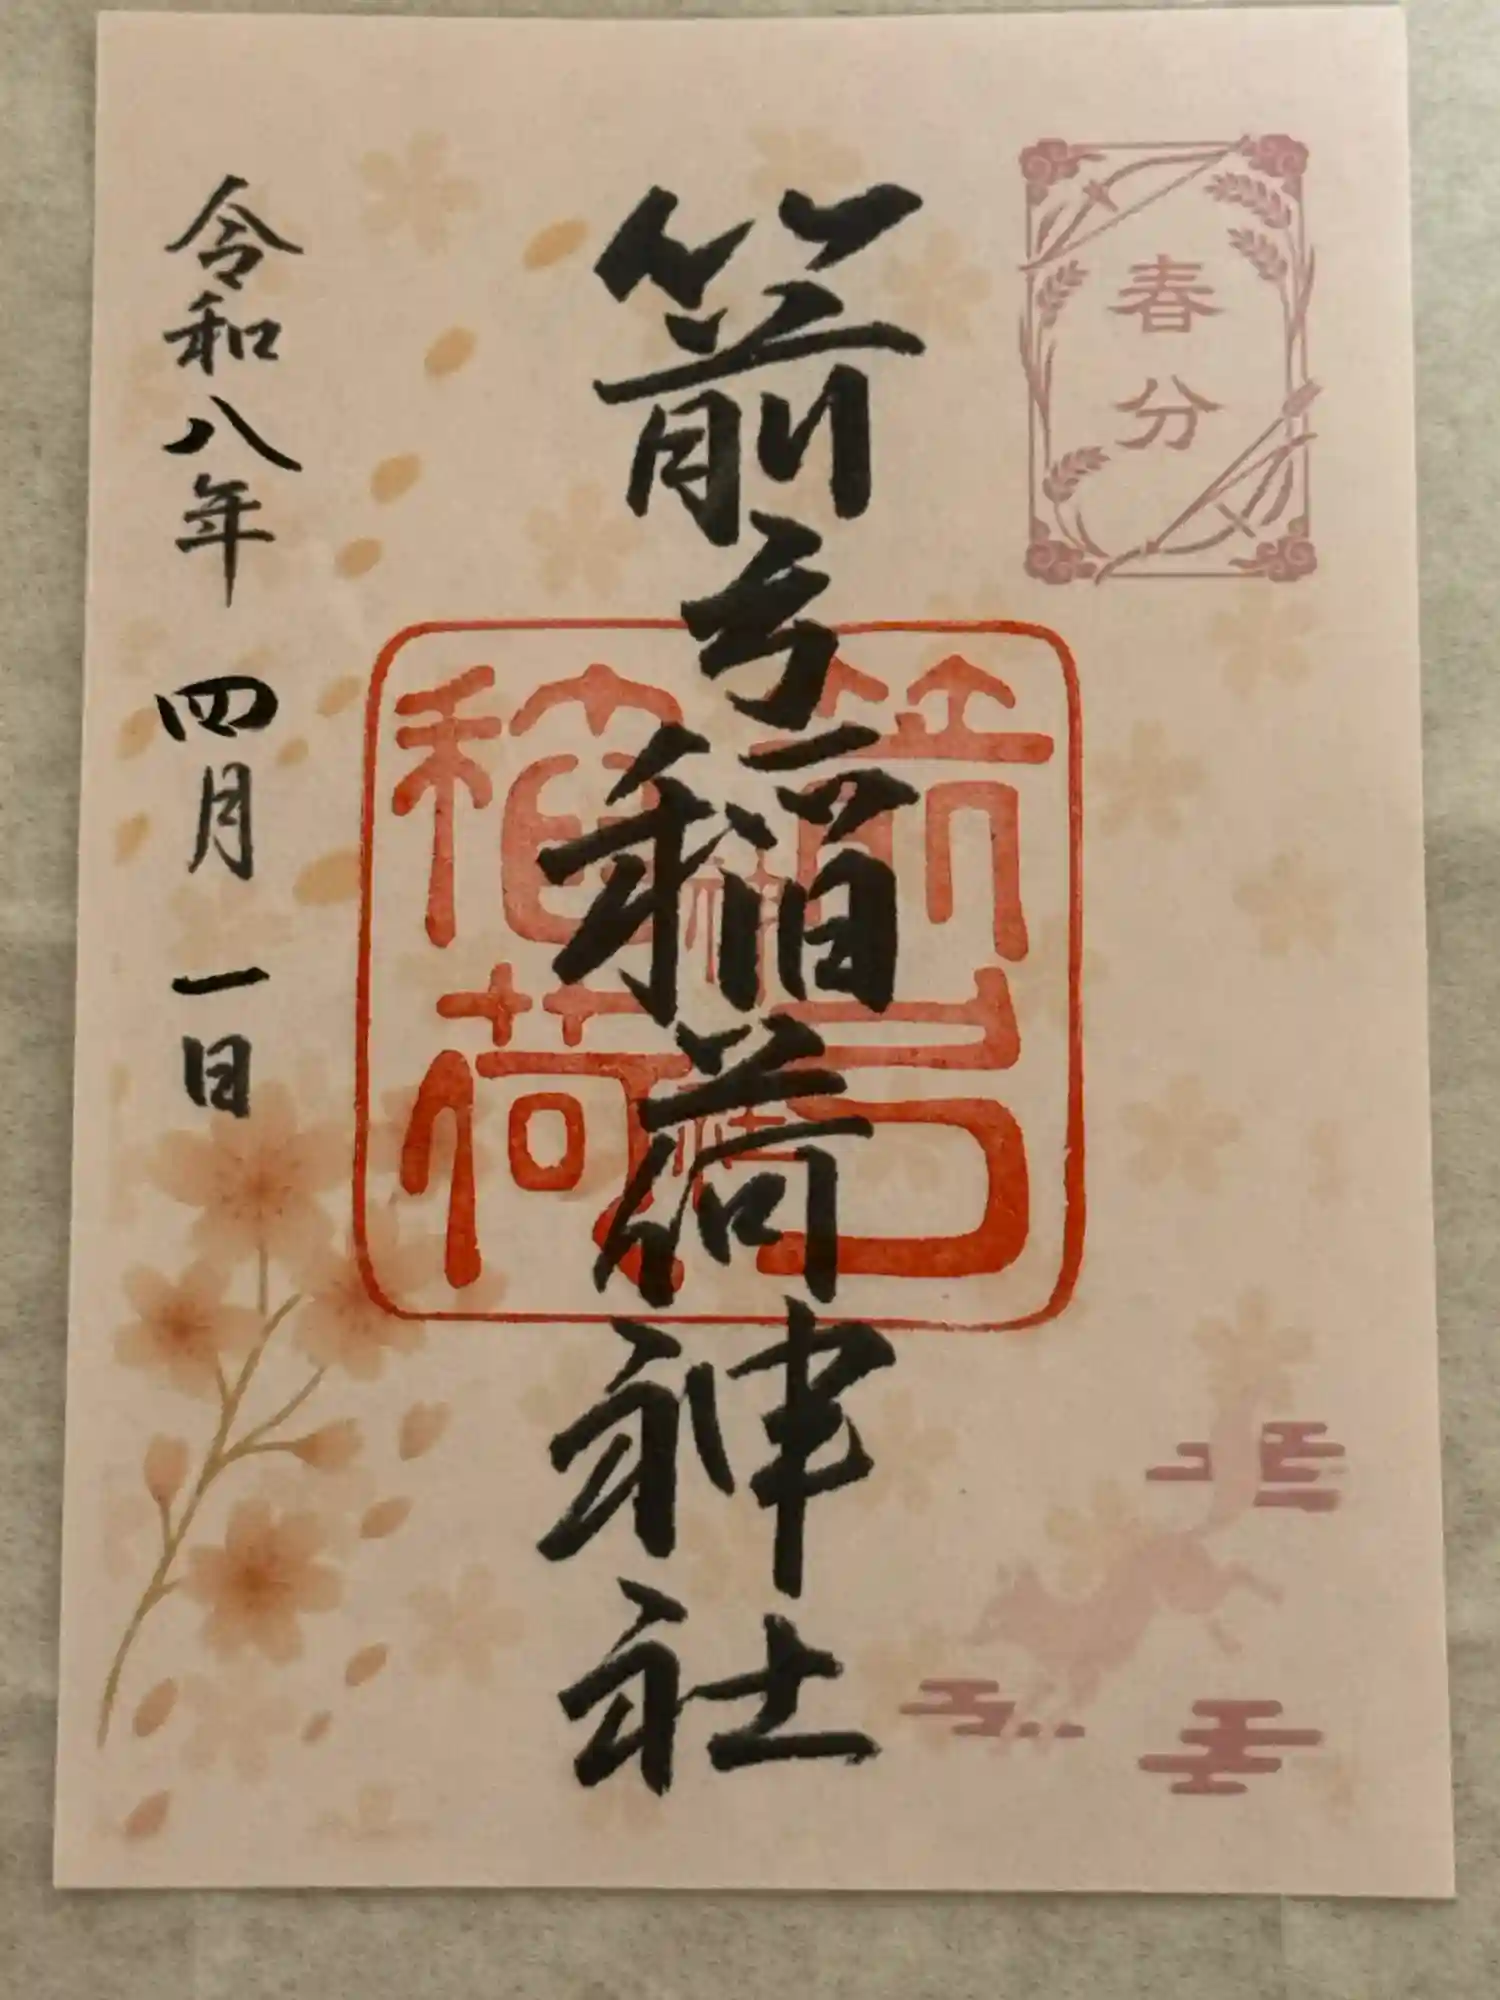 春分
箭弓稲荷神社
箭弓
稲荷
神社
令和八年 四月 一日